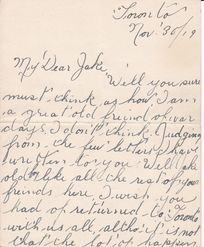 Toronto
Nov. 30/19
My Dear Jake
Well you sure
must think as how I am
a great old friend of war
days, I don't think. Judging
from the few letters I have
written to you. Well Jake
old like all the rest of your
friends here, I wish you
had of returned to Toronto
with us all, altho it is not
that the lot of happen